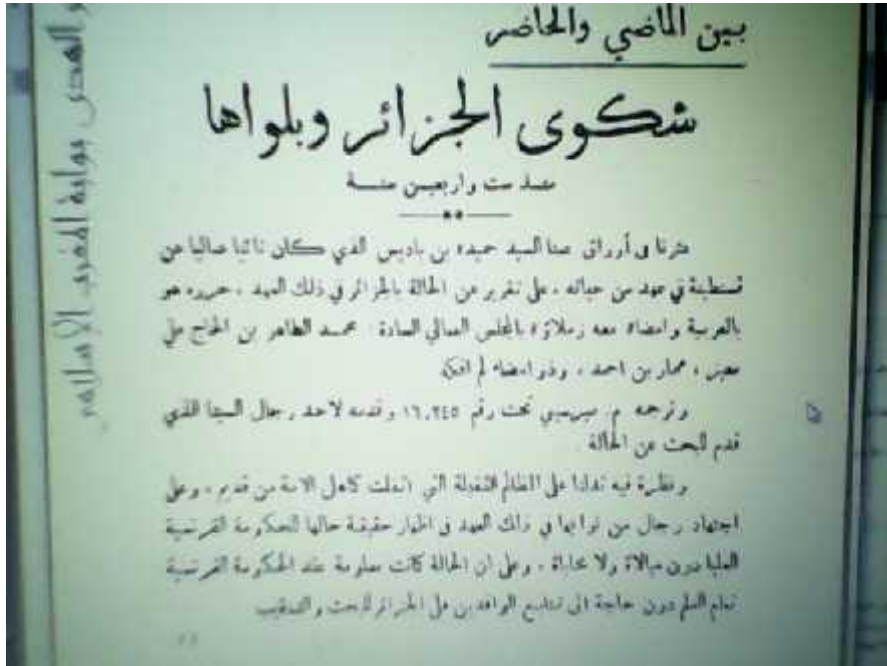 بين الماضي والحاضر
شكوى الجزائر وبلواها
منذ ست واربعين سنة
عثرنا في أوراق عمنا السيد حميدة بن باديس الذي كان نائبا عماليا عن
قسنطينة في عهد من حياته ، على تقرير عن الحالة بالجزائر في ذلك العهد ، حرره هو
بالعربية وامضاه معه زملاؤه بالمجلس العمالي السادة : محمد الطاهر بن الحاج علي
معيز ، عمار بن احمد ، وذو امضاء لم افكه
وترجمه م. ميرسيي تحت رقم ١٦,٢٤٥ وقدمه لاحد رجال السينا الذي
قدم للبحث عن الحالة
ونظرة فيه تدلنا على المظالم الثقيلة التي اثقلت كاهل الامة من قديم ، وعلى
اجتهاد رجال من نوابها في ذلك العهد في اظهار حقيقة حالها للحكومة الفرنسية
العليا دون مبالاة ولا محاباة ، وعلى ان الحالة كانت معلومة عند الحكومة الفرنسية
تمام العلم دون حاجة الى تتابع الوافدين على الجزائر للبحث والتنقيب
الهدى بوابة المغرب الإسلامي